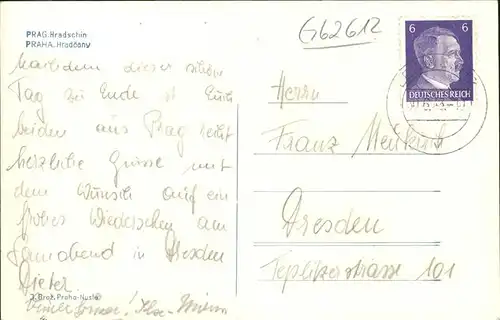 PRAG. Hradschin
PRAHA. Hradčany
G62612
6 6
DEUTSCHES REICH
Nachdem dieser schöne
Tag zu Ende ist Euch
beiden aus Prag recht
herzliche Grüsse mit
dem Wunsch auf ein
frohes Wiedersehen am
Sonnabend in Dresden
Dieter
J. Brož, Praha-Nusle
Herrn
Franz
Dresden
Teplitzerstrasse 101